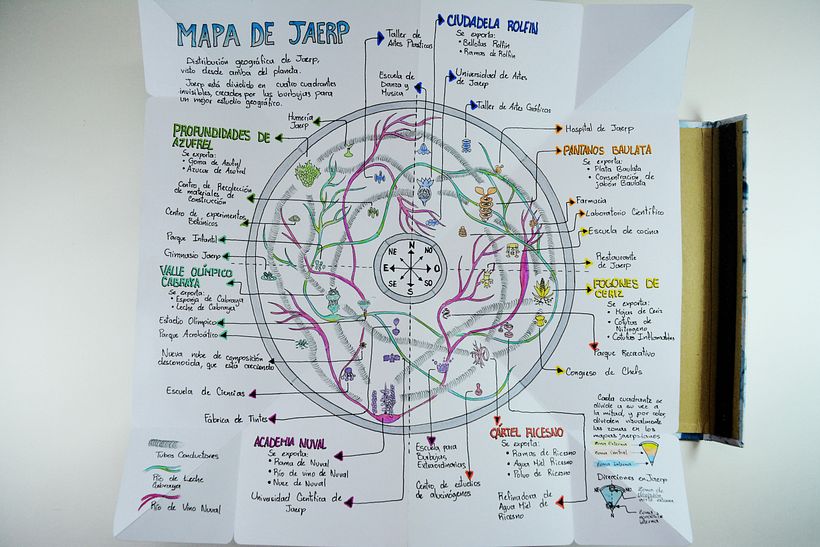 MAPA DE JAERP
Distribución geográfica de Jaerp,
visto desde arriba del planeta.
Jaerp está dividido en cuatro cuadrantes
invisibles, creados por las burbujas para
un mejor estudio geográfico.
Taller de
Artes Plásticas
Escuela de
Danza y
Música
CIUDADELA ROLFIN
Se exporta:
• Bellotas Rolfin
• Ramas de Rolfin
Universidad de Artes
de Jaerp
Taller de Artes Gráficas
Humería
Jaerp
PROFUNDIDADES DE
AZUFREL
Se exporta:
• Goma de Azufrel
• Azúcar de Azufrel
Centro de Recolección
de materiales de
construcción
Centro de experimentos
Botánicos
Parque Infantil
Gimnasio Jaerp
VALLE OLÍMPICO
CABRAYA
Se exporta:
• Esponja de Cabraya
• Leche de Cabraya
Estadio Olímpico
Parque Acrobático
Nueva nube de composición
desconocida, que está creciendo
Escuela de Ciencias
Fábrica de Tintes
Hospital de Jaerp
PANTANOS BAULATA
Se exporta:
• Plata Baulata
• Concentración de
jabón Baulata
Farmacia
Laboratorio Científico
Escuela de cocina
Restaurante
de Jaerp
FOGONES DE
CERIZ
Se exporta:
• Hojas de Ceriz
• Cofutas de
Nitrógeno
• Cofutas Inflamables
Parque Recreativo
Congreso de Chefs
N
NO
O
SO
S
SE
E
NE
Tubos Conductores
Río de Leche
Cabraya
Río de Vino Nuval
ACADEMIA NUVAL
Se exporta:
• Rama de Nuval
• Río de vino de Nuval
• Nuez de Nuval
Universidad Científica de
Jaerp
Escuela para
Burbujas
Extraordinarias
Centro de estudios
de alucinógenos
CÁRTEL RICESNO
Se exporta:
• Ramas de Ricesno
• Agua Miel Ricesno
• Polvo de Ricesno
Refinadora de
Agua Miel de
Ricesno
Cada cuadrante se
divide a su vez a
la mitad, y por color,
dividen visualmente
las zonas en los
mapas jaerpsianos
Zona Externa
Zona Central
Zona Interna
Direcciones en Jaerp